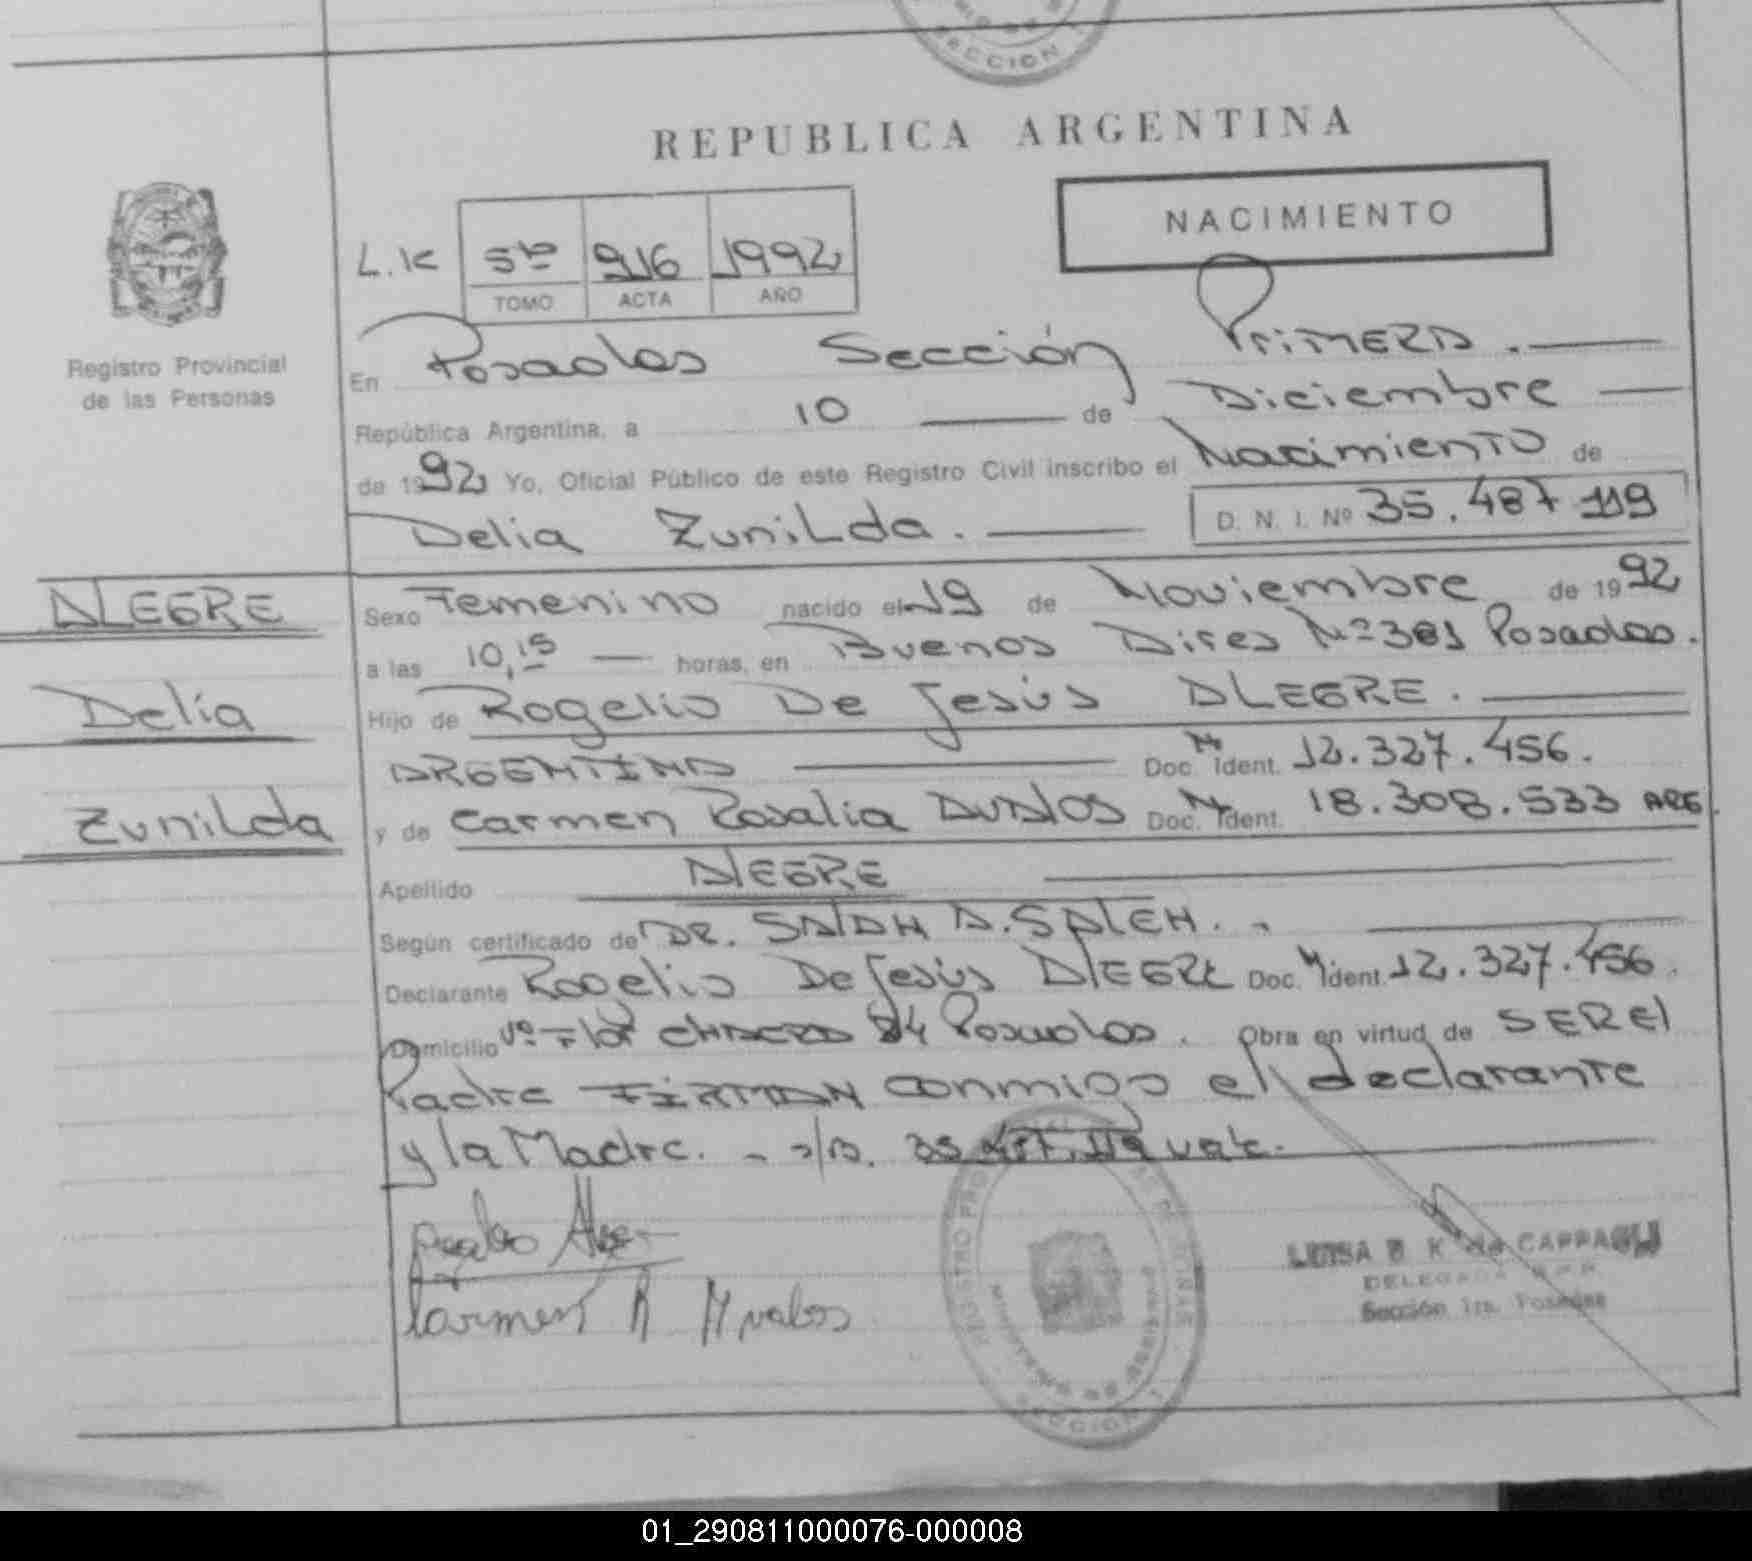 SECCION 1
REPUBLICA ARGENTINA
NACIMIENTO
L.K 5to 916 1992
TOMO ACTA AÑO
Registro Provincial
de las Personas
En Posadas Sección Primera.
República Argentina, a 10 de Diciembre
de 1992 Yo, Oficial Público de este Registro Civil inscribo el Nacimiento de
Delia Zunilda. D. N. I. Nº 35.487 119
ALEGRE
Delia
Zunilda
Sexo Femenino nacido el 19 de Noviembre de 1992
a las 10,15 horas, en Buenos Aires Nº 381 Posadas.
Hijo de Rogelio De Jesús ALEGRE.
ARGENTINA Doc. N Ident. 12.327.456.
y de Carmen Rosalia AVALOS Doc. N Ident. 18.308.533 ARG.
Apellido ALEGRE
Según certificado de DR. SALAH A. SALEH.
Declarante Rogelio De Jesús ALEGRE Doc. N Ident. 12.327.456.
Domicilio Vº Flor CHACRA 84 Posadas. Obra en virtud de SER el
Padre FIRMAN conmigo el declarante
y la Madre. - s/r. 35.487.119 vale.
Carmen R Avalos
LUISA B K de CAPPAGLI
DELEGADA R.P.P.
Sección 1ra. Posadas
REGISTRO PROVINCIAL DE LAS PERSONAS
MINISTERIO DE GOBIERNO
SECCION 1
01_290811000076-000008